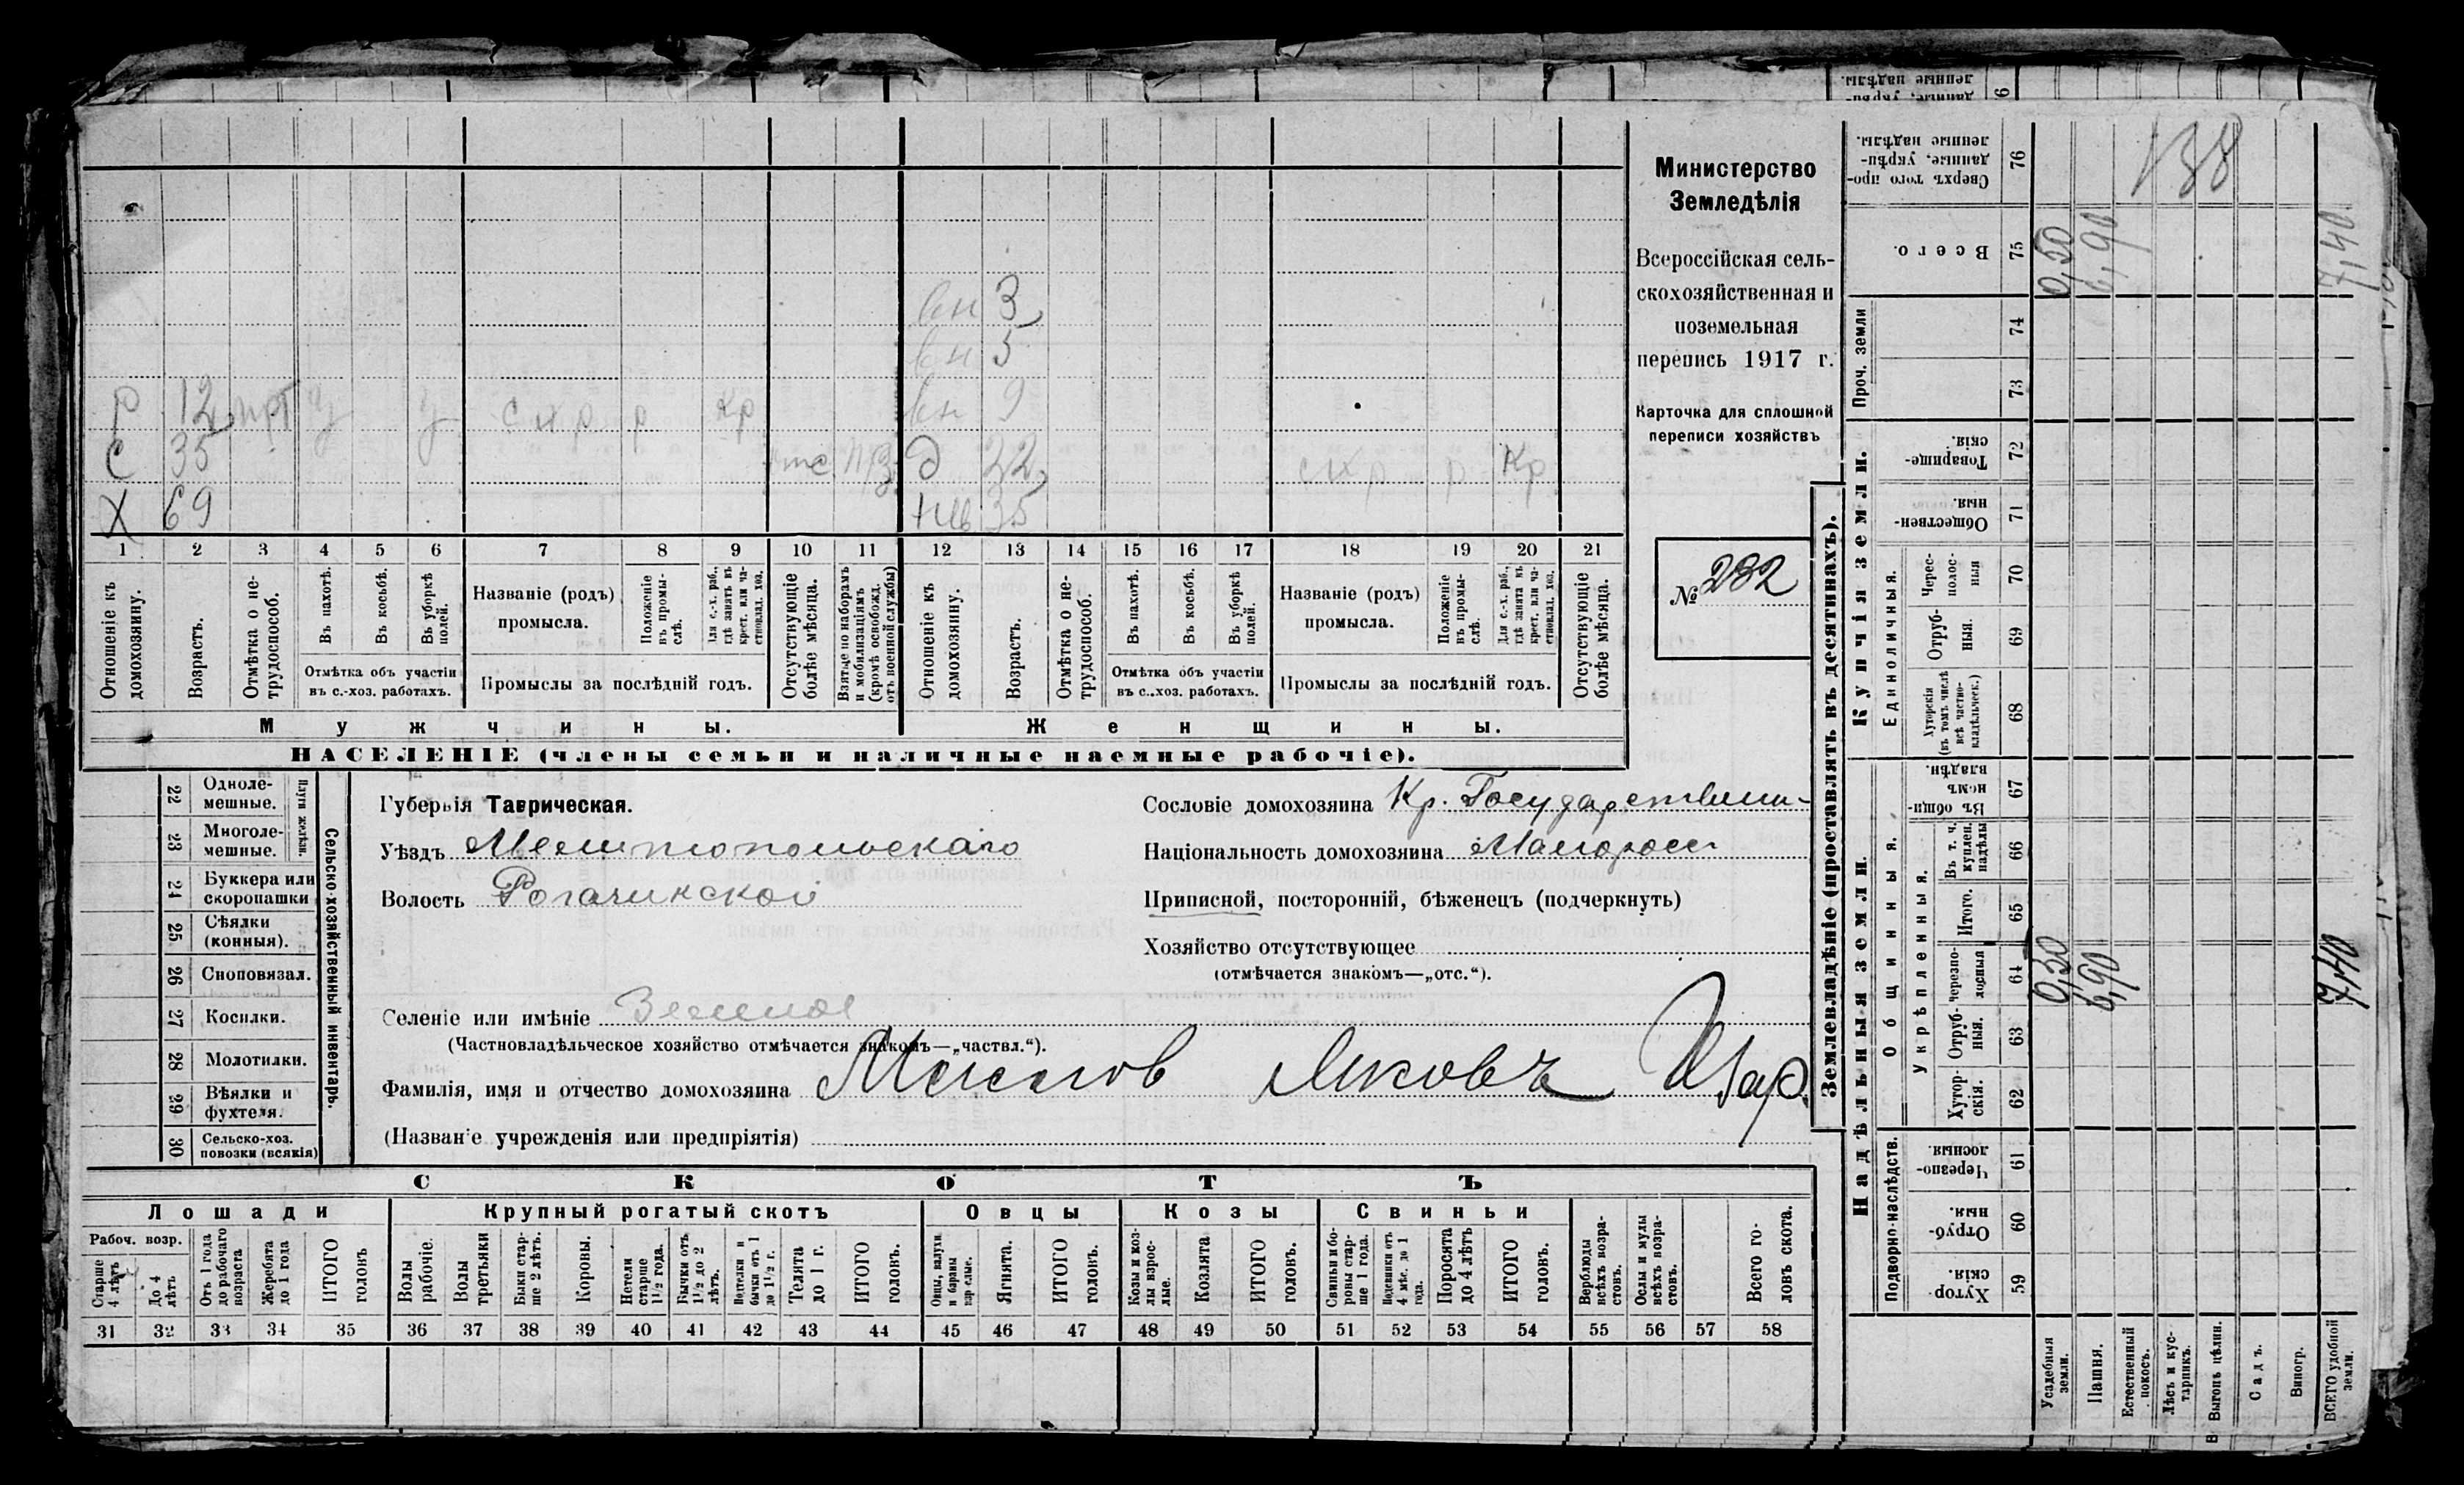 вн 3
вн 5
Р 12 У У с х р р Кр вн 9
С 35 отс Д 22 с х р р Кр
Х 69 35
1 2 3 4 5 6 7 8 9 10 11 12 13 14 15 16 17 18 19 20 21
Отношеніе къ домохозяину.
Возрастъ.
Отмѣтка о нетрудоспособ.
Въ пахотѣ.
Въ косьбѣ.
Въ уборкѣ полей.
Отмѣтка объ участіи
въ с.-хоз. работахъ.
Названіе (родъ)
промысла.
Положеніе въ промыслѣ.
Для с.-х. раб., гдѣ занятъ въ крест. или частновлад. хоз.
Промыслы за послѣдній годъ.
Отсутствующіе болѣе мѣсяца.
Взятые по наборамъ и мобилизаціямъ (кромѣ освобожд. отъ военной службы)
Отношеніе къ домохозяину.
Возрастъ.
Отмѣтка о нетрудоспособ.
Въ пахотѣ.
Въ косьбѣ.
Въ уборкѣ полей.
Отмѣтка объ участіи
въ с.-хоз. работахъ.
Названіе (родъ)
промысла.
Положеніе въ промыслѣ.
Для с.-х. раб., гдѣ занята въ крест. или частновлад. хоз.
Промыслы за послѣдній годъ.
Отсутствующіе болѣе мѣсяца.
Мужчины. Женщины.
НАСЕЛЕНІЕ (члены семьи и наличные наемные рабочіе).
Министерство
Земледѣлія
Всероссійская сель-
скохозяйственная и
поземельная
перепись 1917 г.
Карточка для сплошной
переписи хозяйствъ
№ 232
Сельско-хозяйственный инвентарь.
Плуги желѣзн.
22 Одноле-
мешные.
23 Многоле-
мешные.
24 Буккера или
скоропашки
25 Сѣялки
(конныя).
26 Сноповязал.
27 Косилки.
28 Молотилки.
29 Вѣялки и
фухтеля.
30 Сельско-хоз.
повозки (всякія)
Губернія Таврическая.
Уѣздъ Мелитопольскаго
Волость Рогачикской
Сословіе домохозяина Кр. Государственн-
Національность домохозяина Малоросс
Приписной, посторонній, бѣженецъ (подчеркнуть)
Хозяйство отсутствующее
(отмѣчается знакомъ—„отс.“).
Селеніе или имѣніе Зеленое
(Частновладѣльческое хозяйство отмѣчается знакомъ—„частвл.“).
Фамилія, имя и отчество домохозяина Яковъ
(Названіе учрежденія или предпріятія)
СКОТЪ
Лошади Крупный рогатый скотъ Овцы Козы Свиньи
Рабоч. возр.
Старше 4 лѣтъ
До 4 лѣтъ
Отъ 1 года до рабочаго возраста
Жеребята до 1 года
ИТОГО головъ
Волы рабочіе.
Волы третьяки
Быки старше 2 лѣтъ.
Коровы.
Нетели старше 1½ года.
Бычки отъ 1½ до 2 лѣтъ.
Нетелки и бычки отъ 1 до 1½ г.
Телята до 1 г.
ИТОГО головъ.
Овцы, валухи и бараны взрослые.
Ягнята.
ИТОГО головъ.
Козы и козлы взрослые.
Козлята.
ИТОГО головъ.
Свиньи и боровы старше 1 года.
Подсвинки отъ 4 мѣс. до 1 года.
Поросята до 4 лѣтъ
ИТОГО головъ.
Верблюды всѣхъ возрастовъ.
Ослы и мулы всѣхъ возрастовъ.
Всего головъ скота.
31 32 33 34 35 36 37 38 39 40 41 42 43 44 45 46 47 48 49 50 51 52 53 54 55 56 57 58
Землевладѣніе (проставлять въ десятинахъ).
Сверхъ того проданные, укрѣпленные надѣлы. 76 138
Всего. 75 0,50 6,90 7,40
Проч. земли 74
73
Купчія земли.
Товарищескія. 72
Общественныя. 71
Единоличныя.
Чересполосныя 70
Отрубныя. 69
Хуторскія (въ томъ числѣ всѣ частновладѣльческ.) 68
Надѣльныя земли.
Общинныя.
Въ общинномъ владѣн. 67
Укрѣпленныя.
Въ т. ч. куплен. надѣлы 66
Итого. 65
Черезполосныя 64 0,50 6,90 7,40
Отрубныя. 63
Хуторскія. 62
Подворно-наслѣдств.
Черезполосныя 61
Отрубныя. 60
Хуторскія. 59
Усадебныя земли.
Пашня.
Естественный покосъ.
Лѣсъ и кустарникъ.
Выгонъ цѣлин.
Садъ.
Виногр.
ВСЕГО удобной земли.